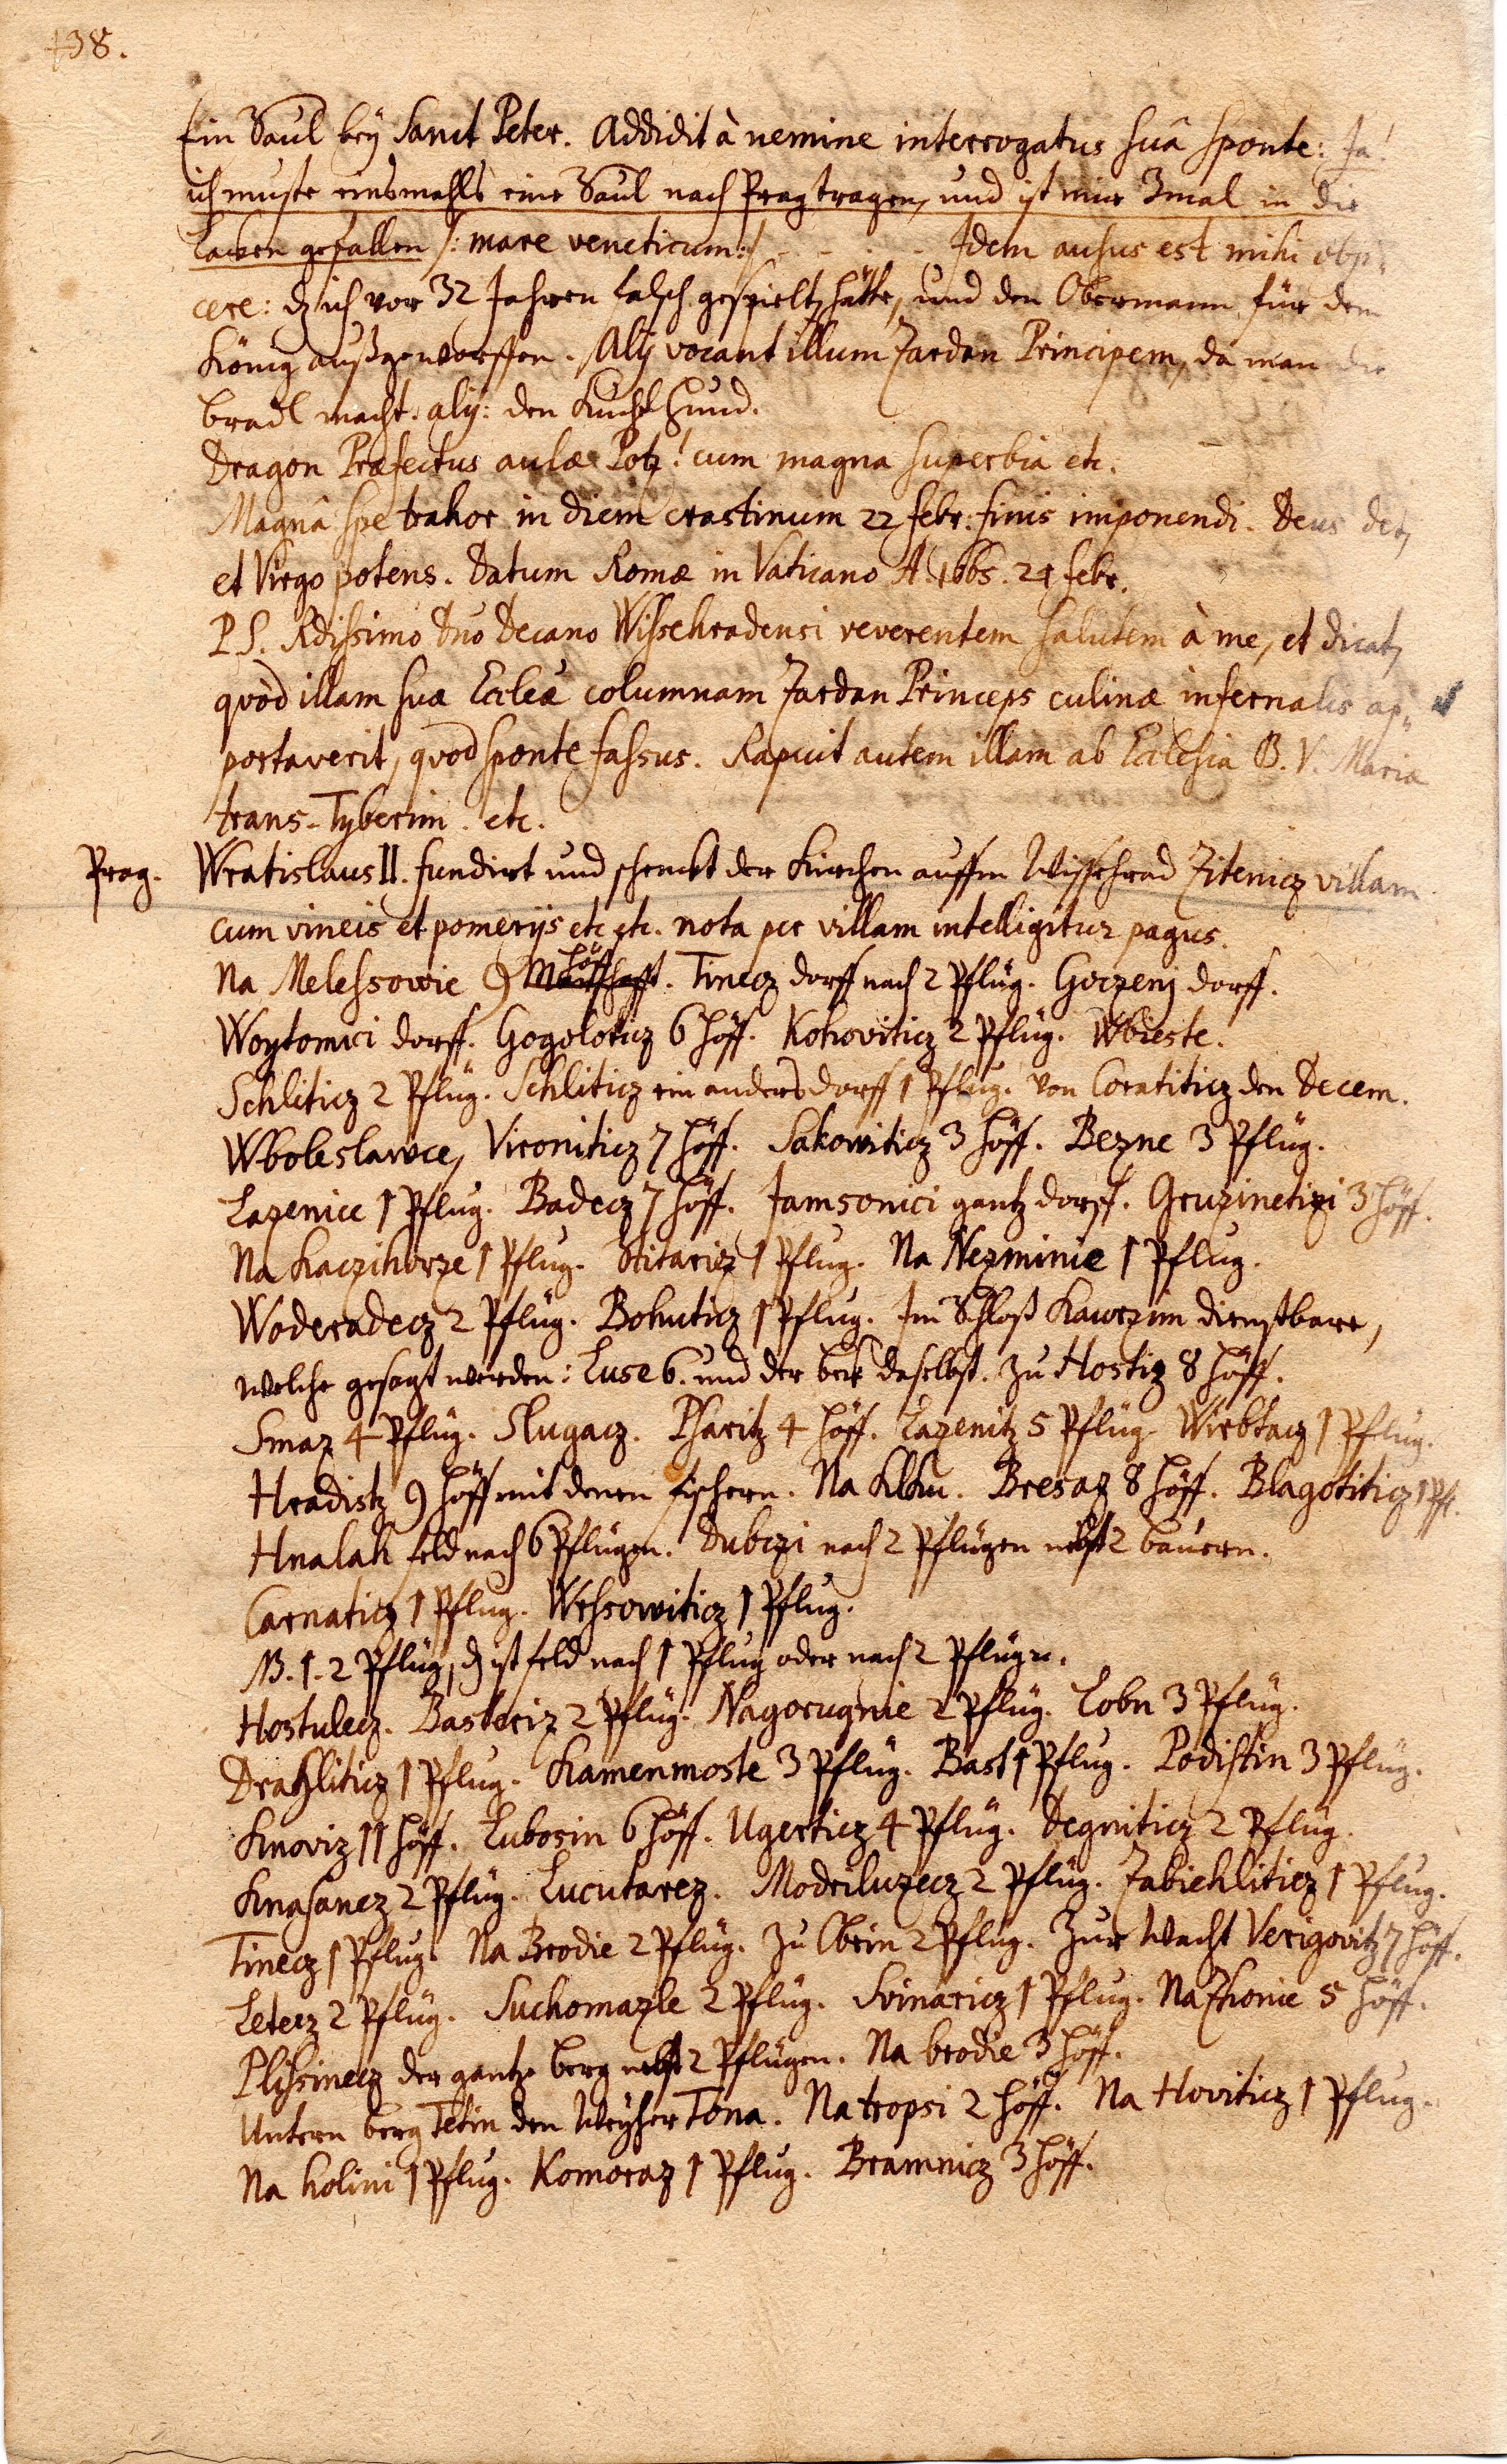 438.
Ein Saul bey Sanct Peter. Addidit à nemine interrogatus suâ sponte: Ja!
ich muste einsmahls eine Saul nach Prag tragen, und ist mir 3mal in die
Lacken gefallen /: mare veneticum :/ - - - - Idem ausus est mihi obji-
cere: dz ich vor 32 Jahren falsch gespielt hätte, und den Obermann für den
König außgeworffen. Alij vocant illum Zardan Principem, da man die
bradl macht. alij: den Kuchl Hund.
Dragon Præfectus aulæ Potz! cum magna superbia etc.
Magnâ spe trahor in diem crastinum 22 febr: finis imponendi. Deus det,
et Virgo potens. Datum Romæ in Vaticano A. 1665. 21 febr.
P.S. Rdissimo Dno Decano Wissehradensi reverentem salutem à me, et dicat,
quòd illam suæ Eccleæ columnam Zardan Princeps culinæ infernalis ap-
portaverit, quod sponte fassus. Rapuit autem illam ab Ecclesia B. V. Maria
trans-Tyberim. etc.
Prag. Wratislaus II. fundirt und schenckt der Kirchen auffm Wissehrad Zitenicz villam
cum vineis et pomerijs etc etc. nota per villam intelligitur pagus.
Na Melessowie 9 Höff. Tinecz dorff nach 2 Pflüg. Goczenj dorff.
Woytomici dorff. Gogoloticz 6 Höff. Kohoviticz 2 Pflüg. Wbieste.
Schliticz 2 Pflüg. Schliticz ein anders dorff 1 Pflug. von Coratiticz den Decem.
Wboleslawce, Vironiticz 7 Höff. Sakowiticz 3 Höff. Bezne 3 Pflüg.
Lazenice 1 Pflug. Badecz 7 Höff. Jamsonici gantz dorff. Gruzinetizi 3 Höff.
Na Kaczihorze 1 Pflug. Stitaricz 1 Pflug. Na Nezminie 1 Pflug.
Woderadecz 2 Pflüg. Bohuticz 1 Pflug. Im Schloß Kawrzim dienstbare,
welche gesagt werden: Luse 6. und der beck daselbst. zu Hostiz 8 Höff.
Smaz 4 Pflüg. Slugacz. Psaritz 4 Höff. Lazenitz 5 Pflüg. Wirbtacz 1 Pflug.
Hradistz 9 Höff mit denen fischern. Na Klku. Bresaz 8 Höff. Blagotiticz 1 Pfl.
Hnalah feld nach 6 Pflügen. Dubczi nach 2 Pflügen nebst 2 bauern.
Carnaticz 1 Pflug. Wrssowiticz 1 Pflug.
NB. 1. 2 Pflüg, dz ist feld nach 1 Pflug oder nach 2 Pflügn.
Hostulecz. Basteriz 2 Pflüg. Nagorugnie 2 Pflüg. Lobn 3 Pflüg.
Drahliticz 1 Pflug. Kamenmoste 3 Pflüg. Bast 1 Pflug. Podistin 3 Pflüg.
Knoviz 11 Höff. Lubosin 6 Höff. Ugerticz 4 Pflüg. Degniticz 2 Pflüg.
Knasanez 2 Pflüg. Lucutarez. Modriluzecz 2 Pflüg. Zabiehliticz 1 Pflug.
Tinecz 1 Pflug. Na Brodie 2 Pflüg. zu Obrin 2 Pflüg. Zur Wacht Verigovitz 7 Höff.
Letecz 2 Pflüg. Suchomazle 2 Pflüg. Svinaricz 1 Pflug. Na Zhonie 5 Höff.
Plissinecz der gantze berg nebst 2 Pflügen. Na brodie 3 Höff.
Untern berg Tetin den Weyher Tona. Na tropsi 2 Höff. Na Hoviticz 1 Pflug.
Na kolini 1 Pflug. Komoraz 1 Pflug. Bramnicz 3 Höff.